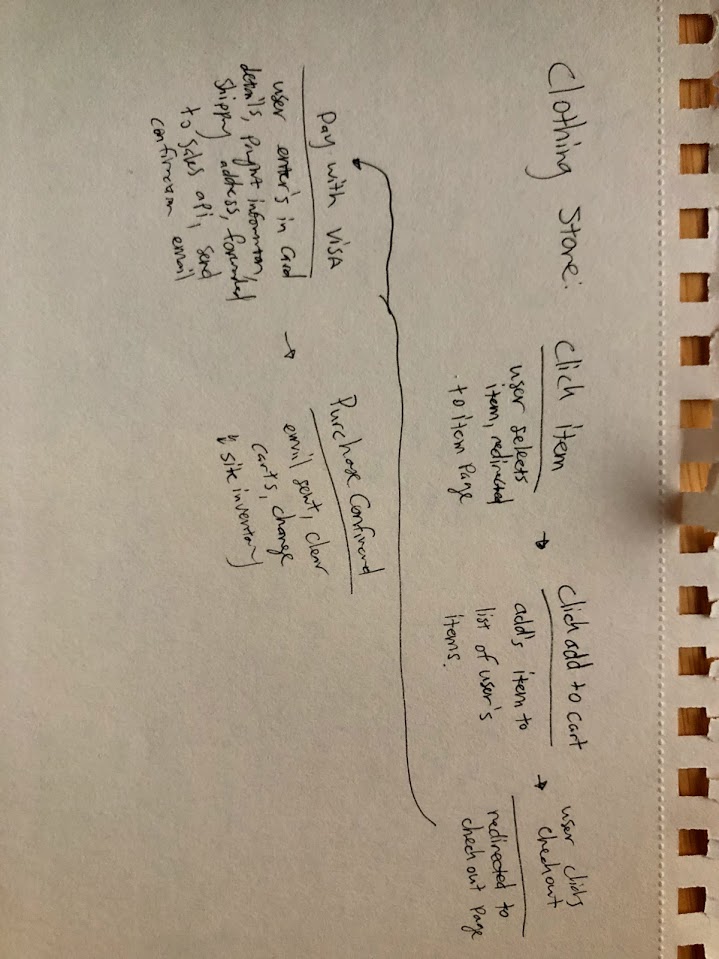 Clothing Store:
Click item
user selects
item, redirected
to item Page
→
Click add to cart
add's item to
list of user's
items.
→
user clicks
checkout
redirected to
checkout Page
Pay with VISA
user enter's in Card
details, information,
shipping address, forwarded
to sales api, send
confirmation email
→
Purchase Confirmed
email sent, clear
carts, change
site inventory